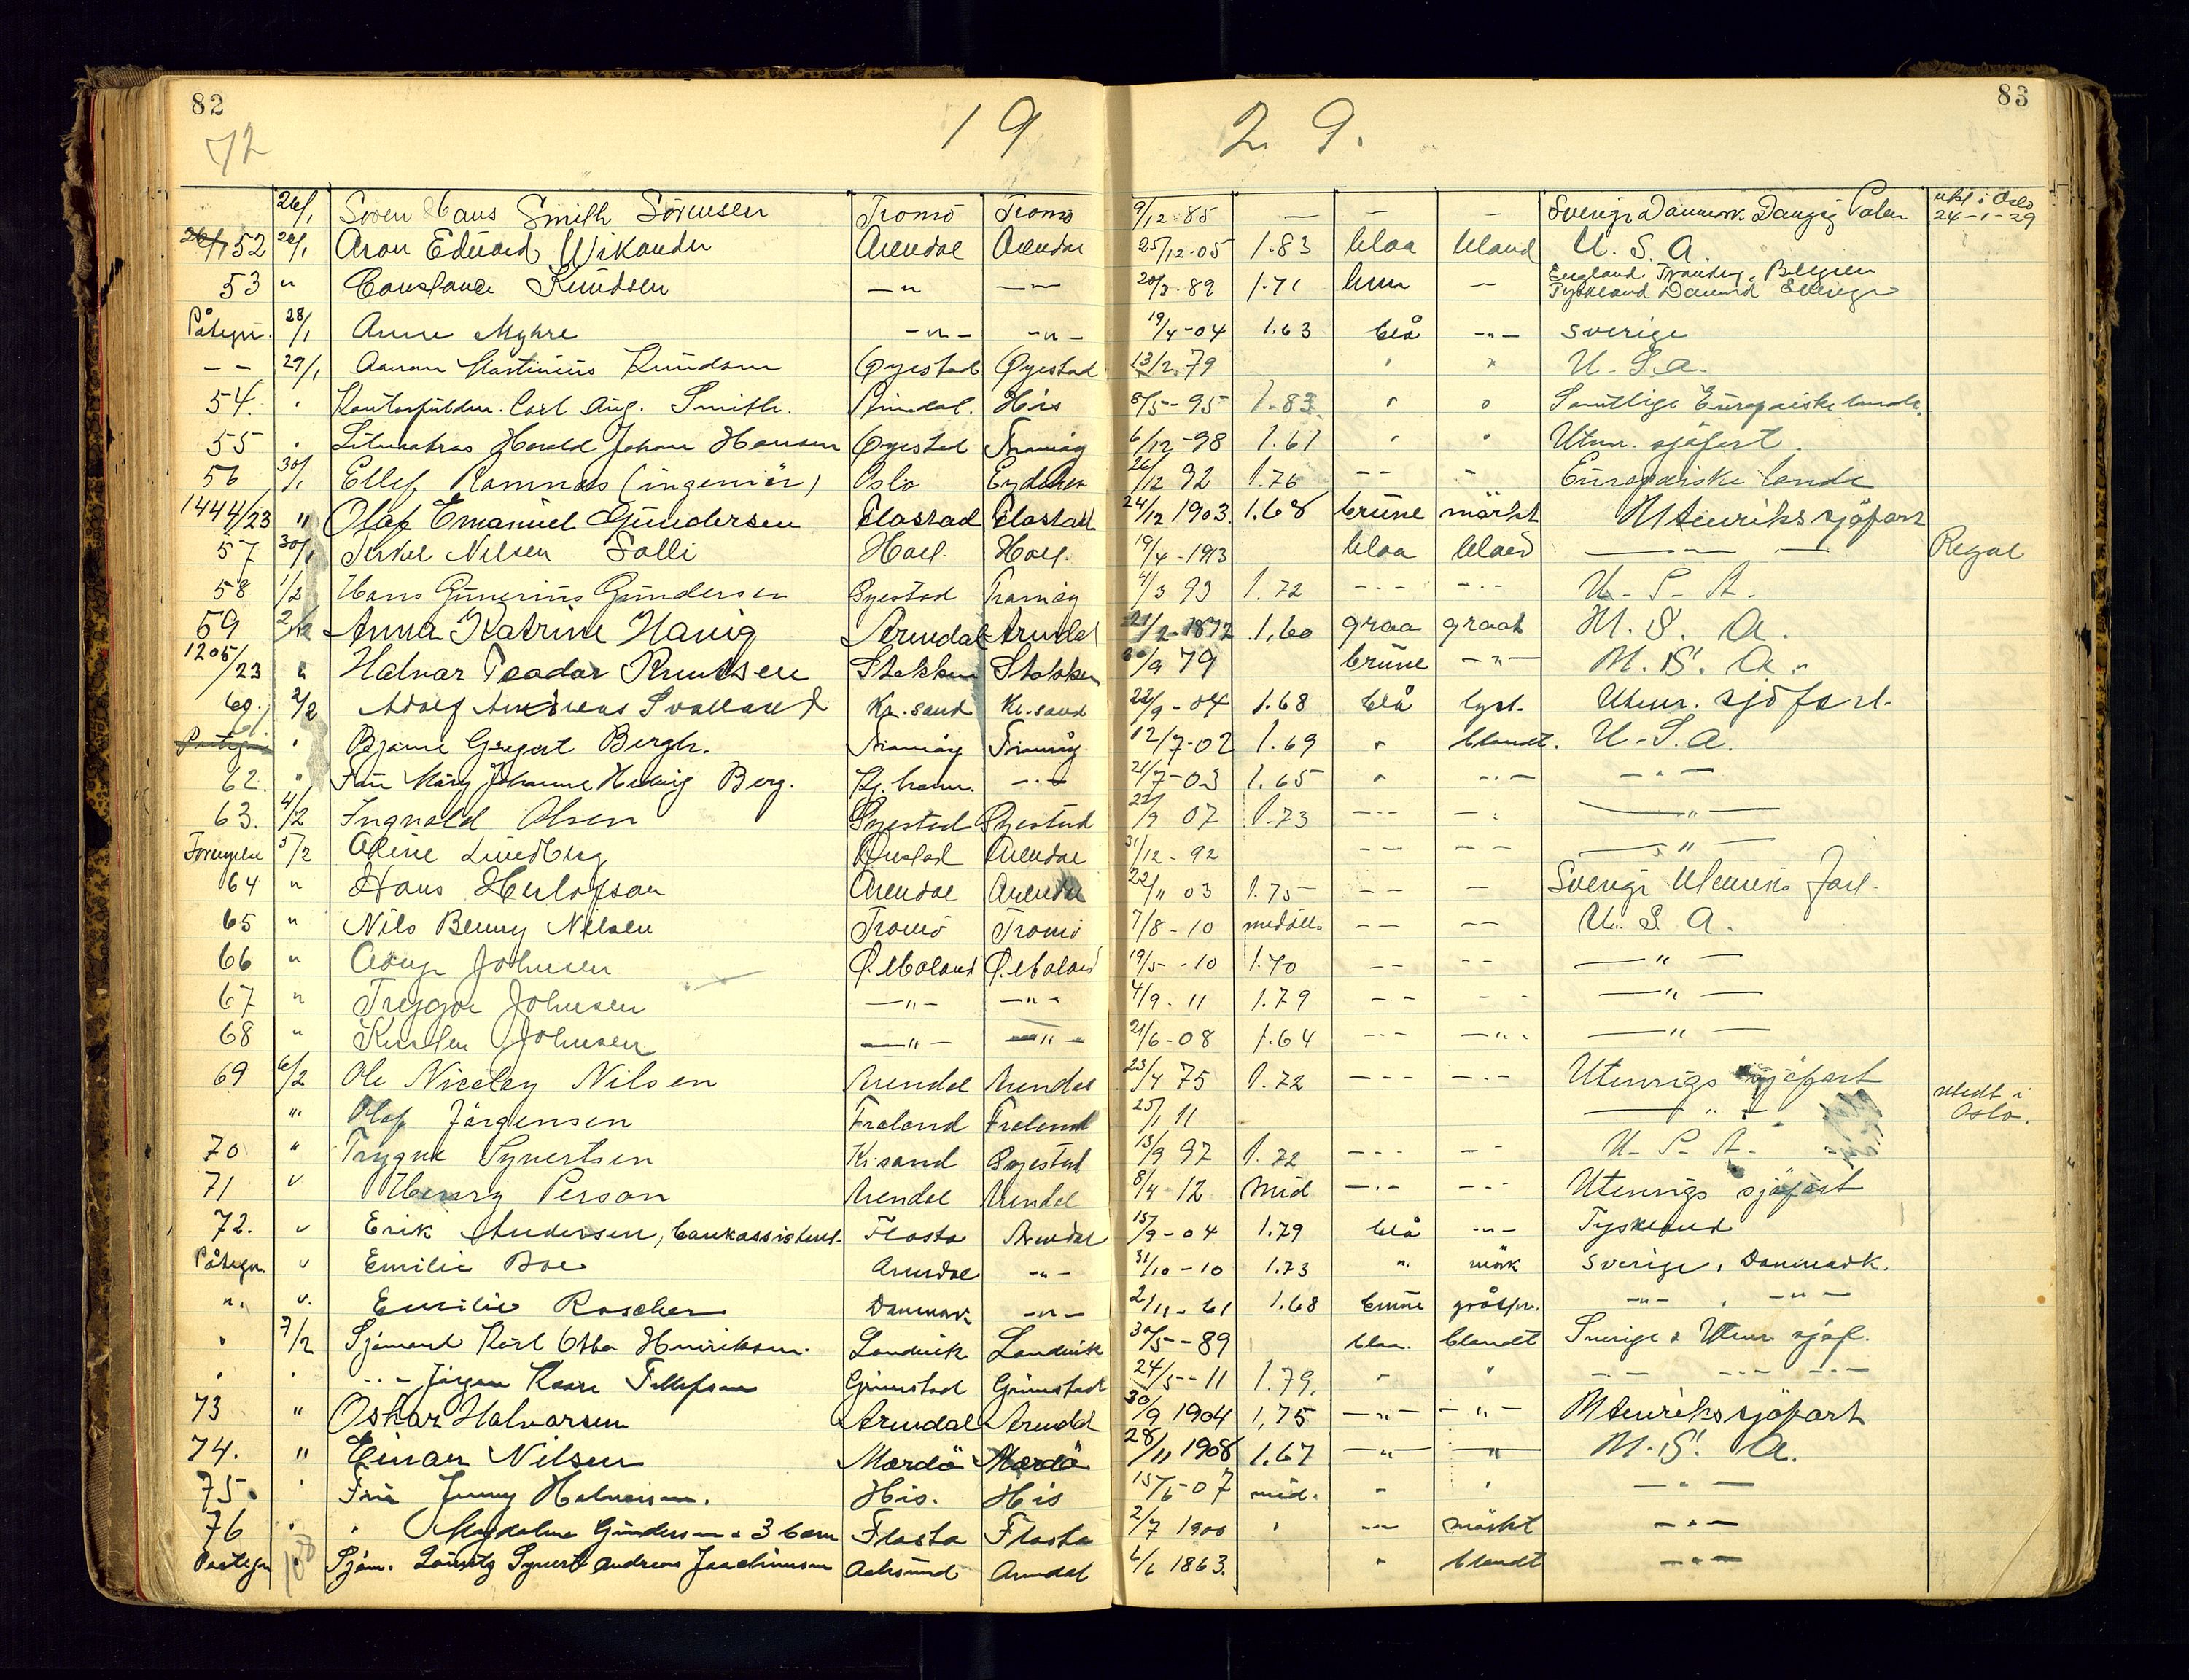 82
83
72
19 29.
26/1 Soren Hans Smith Sörensen Tromö Tromö 9/12 85 — — — Sverige Danmark Danzig Polen utst i Oslo 24-1-29
52 26/1 Aron Edvard Wikander Arendal Arendal 25/12-05 1.83 blaa bland U. S. A.
53 " Constance Knudsen —"— —"— 20/3-89 1.71 brun — England Frankrig, Belgien
Tyskland Danmark Sverige
Påtegn. 28/1 Anne Myhre -"- -"- 19/4-04 1.63 blå -"- Sverige
-- 29/1 Aanon Martinius Knudsen Øyestad Øyestad 13/2 79 " " U.S.a.
54. " Kontorfuldm. Carl Aug. Smith. Arendal. His 8/5-95 1.83 " " Samtlige Europæiske lande.
55 " Harald Johan Hansen Øyestad Tromøy 6/12-98 1.61 " " Utenr. sjöfart.
56 30/1 Ellef Ramnæs (ingeniör) Oslo Eydehavn 26/12 92 1.76 -- - Europæiske lande
1444/23 " Olaf Emanuel Gundersen Flostad Flostad 24/12 1903. 1.68 brune mörkt Utenriks sjöfart
57 30/1 Terkel Nilsen Solli Holt. Holt. 19/4-1913 blaa bland —"— Regal
58 1/2 Hans Gunerius Gundersen Øyestad Tromøy 4/3 93 1.72 -"- -"- U.S.A.
59 2/2 Anna Katrine Hauig Arendal Arendal 21/2-1872 1,60 graa graat U.S.A.
1205/23 " Halvar Teodor Knutsen Stokken Stokken 30/9 79 brune -"- U.S.A.
60. 2/2 Adolf Andreas Svaland Kr.sand Kr.sand 22/9-04 1.68 blå lyst. Utenr. sjöfart.
" Bjarne Gregert Bergh. Tromøy Tromøy 12/7-02 1.69 " blandt. U.S.a.
62. " Fru Mary Johanne Hedvig Berg. Kj.havn. -"- 21/7-03 1.65 " -"- -"-
63. 4/2 Ingvald Olsen Øyestad Øyestad 22/9 07 1.73 -"- -"- —"—
Fornyelse 5/2 Oline Lindberg Arendal 31/12-92 -- -- —"—
64 " Hans Herlofson Arendal Arendal 22/11 03 1.75 -- - Sverige Utenriks fart.
65 " Nils Benny Nilsen Tromö Tromö 7/8-10 middels -- -- U.S.A.
66 " Aasye Johnsen Ø. Moland Ø. Moland 19/5-10 1.70 -- -- —"—
67 " Tryggve Johnsen —"— —"— 4/9-11 1.79 -- -- —"—
68 " Kirsten Johnsen —"— —"— 21/6-08 1.64 -"- -"- —"—
69 6/2 Ole Nicolay Nilsen Arendal Arendal 23/4 75 1.72 --- -"- Utenrigs sjöfart
" Olaf Jörgensen Froland Froland 25/1 11 —"— utstedt i Oslo.
70 " Trygve Syvertsen Kr.sand Øyestad 13/9 97 1.72 --- -- U.S.A.
71 " Henry Person Arendal Arendal 8/4 12 mid -"- -"- Utenrigs sjöfart
72. " Erik Andersen, bankassistent. Flosta Arendal 15/9-04 1.79 blå -"- Tyskland
Påtegn. " Emilie Boe Arendal -"- 31/10-10 1.73 ". mörk Sverige, Danmark.
". ". Emilie Roscher Danmark -"- 2/11-61 1.68 brune gråspr. -"- , -"-
" 7/2 Sjömand Karl Otto Henriksen. Landvik Landvik 30/5-89 blaa. blandt Sverige & Utenr. sjöf.
" " -"- Jörgen Kaare Tellefsen Grimstad Grimstad 24/5-11 1.79. " " -- -"- -"-
73 " Oskar Halvorsen Arendal Arendal 30/9 1904 1,75 -"- -"- Utenriks sjöfart
74. " Einar Nilsen Merdö Merdö 28/11 1908 1.67 —"— —"— U.S.A.
75. " Fru Jenny Halvorsen. His. His 15/6-07 mid. " " -"-
76 " " Magdalene Gundersen & 3 barn Flosta Flosta 2/7 1900 " -"- mörkt -"-
Paategn " Sjöm. Lauritz Syvert Andreas Joachimsen Arendal 6/6 1863. " blandt -"-